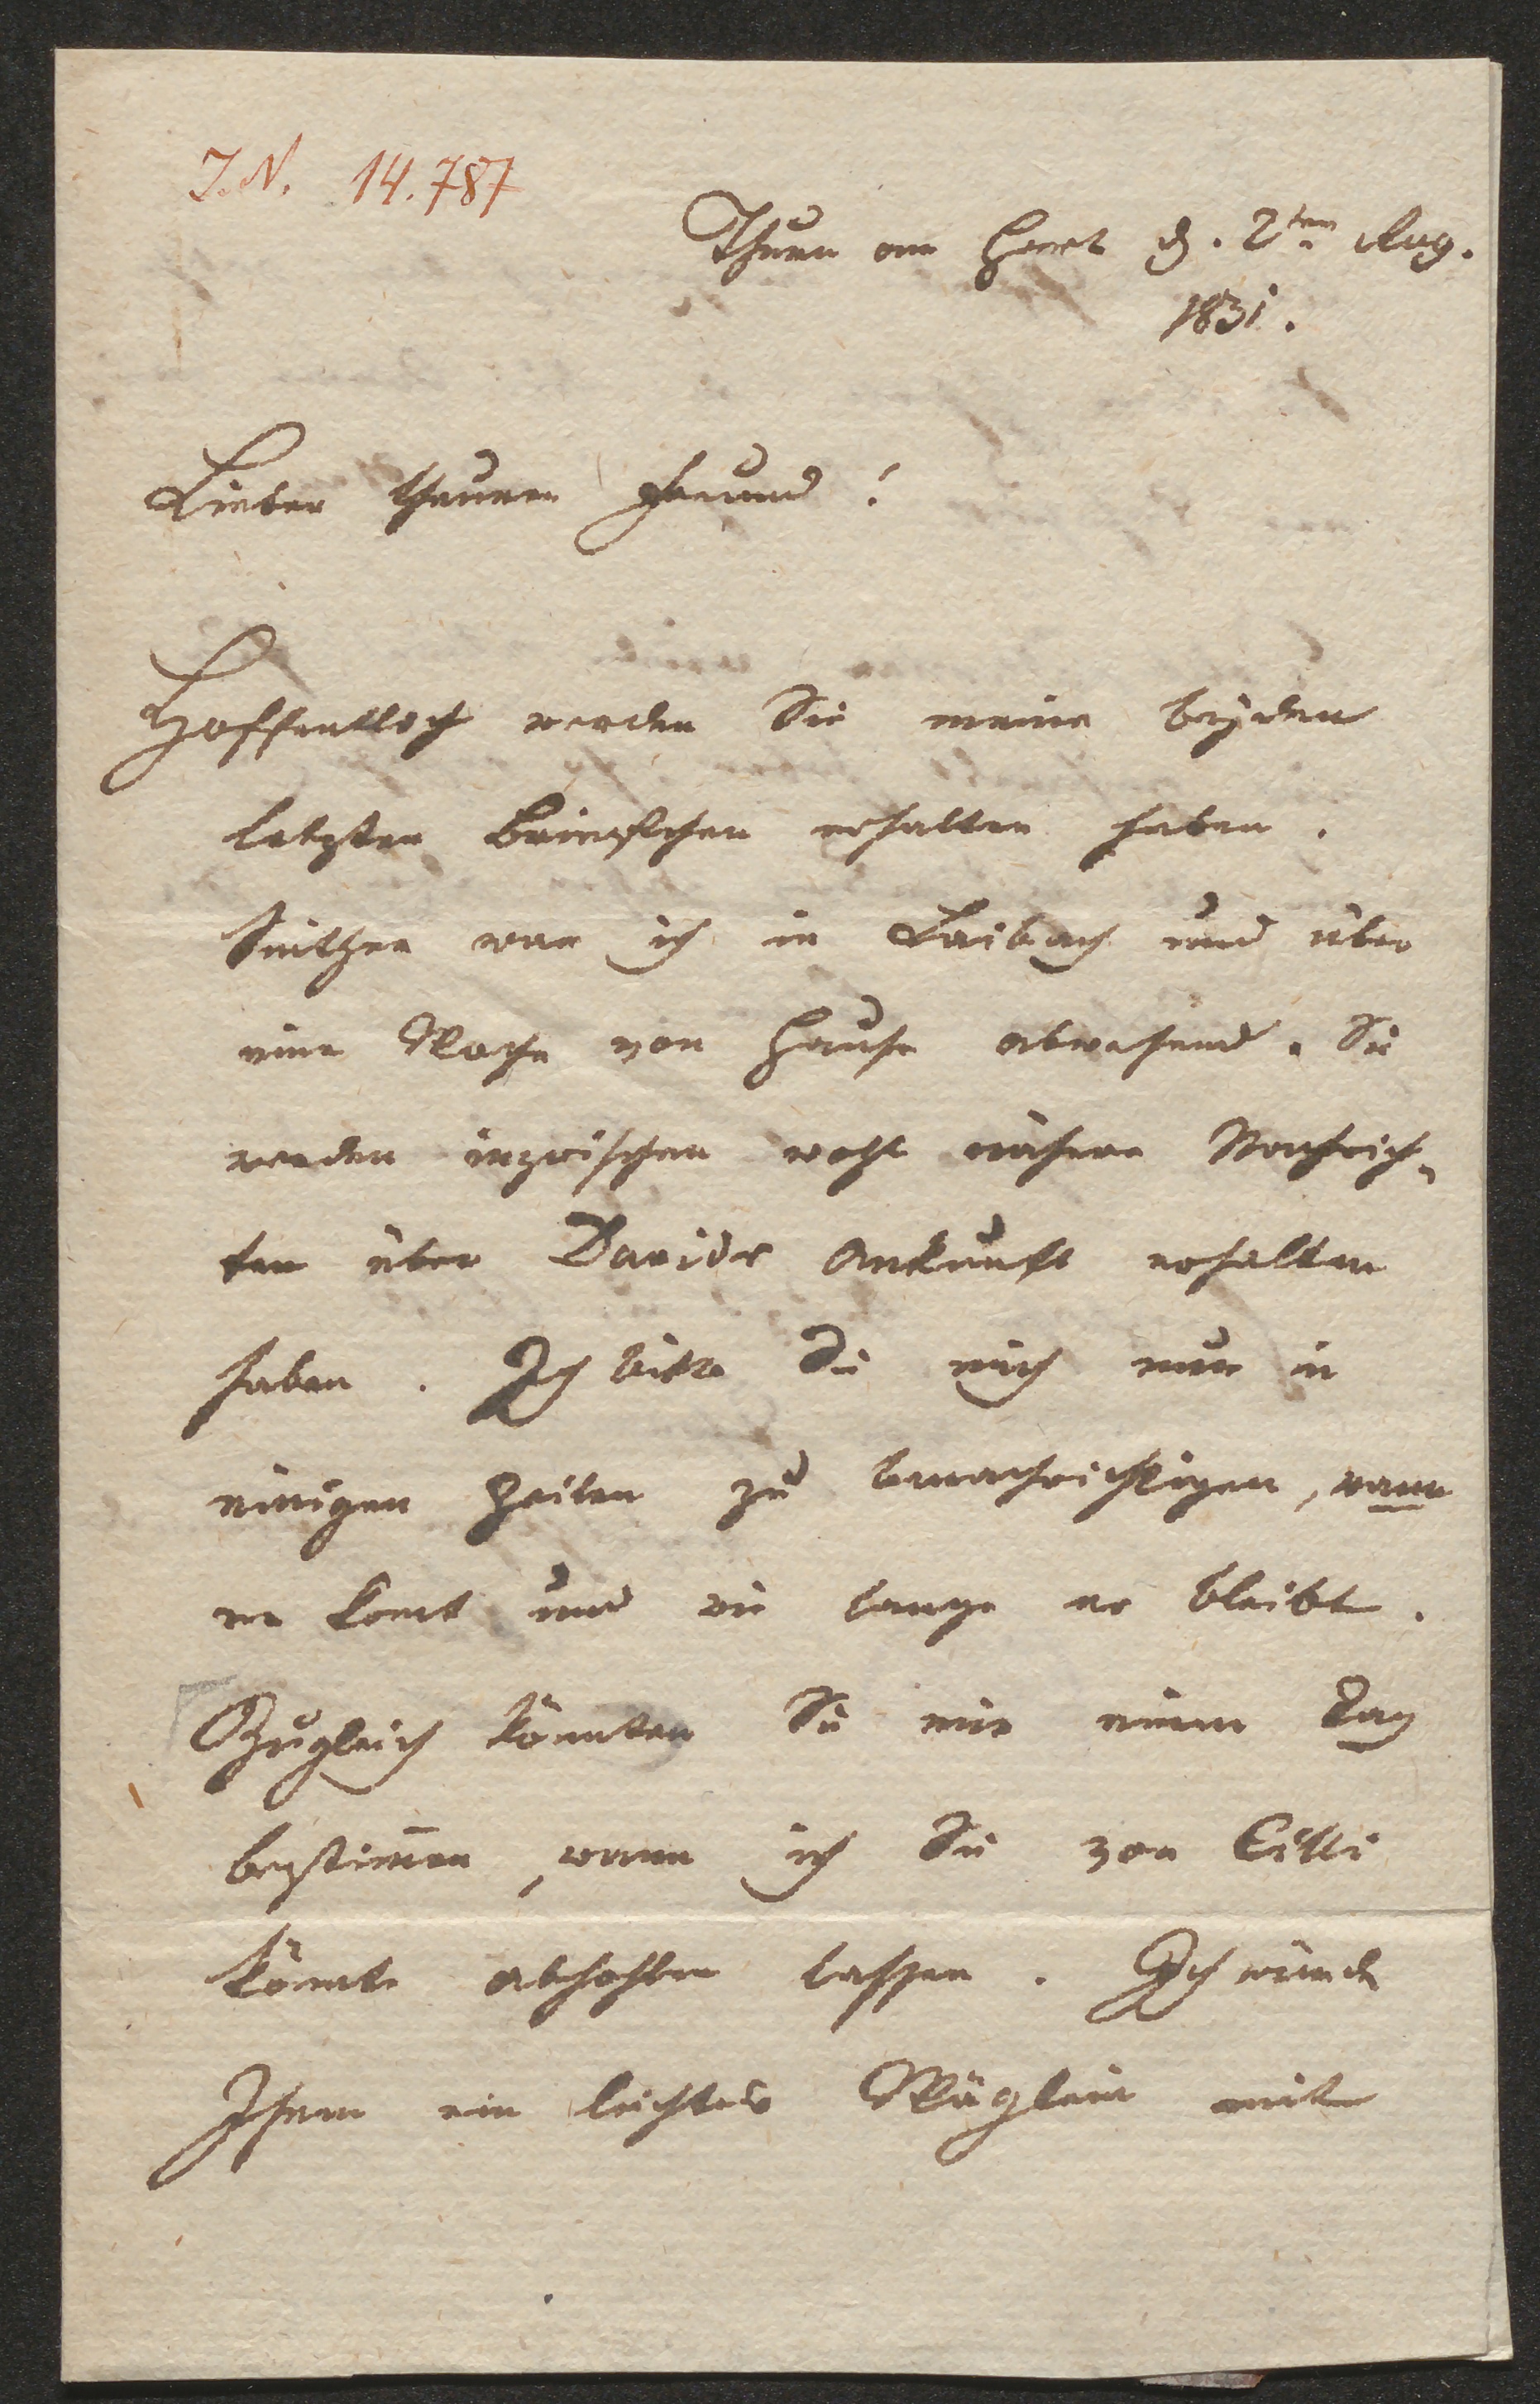 I.N. 14.787
Thurn am Hart d. 2ten Aug.
1831.
Lieber theurer Freund!
Hoffentlich werden Sie meine beyden
letzten Briefchen erhalten haben.
Seither war ich in Laibach und über
eine Woche von Hause abwesend. Sie
werden inzwischen wohl nähere Nachrich-
ten über Davids Ankunft erhalten
haben. Ich bitte Sie mich nur in
einigen Zeilen zu benachrichtigen, wann
er komt und wie lange er bleibt.
Zugleich könnten Sie mir einen Tag
bestim̄en, wann ich Sie von Cilli
könnte abhohlen lassen. Ich würde
Ihnen ein leichtes Wäglein mit